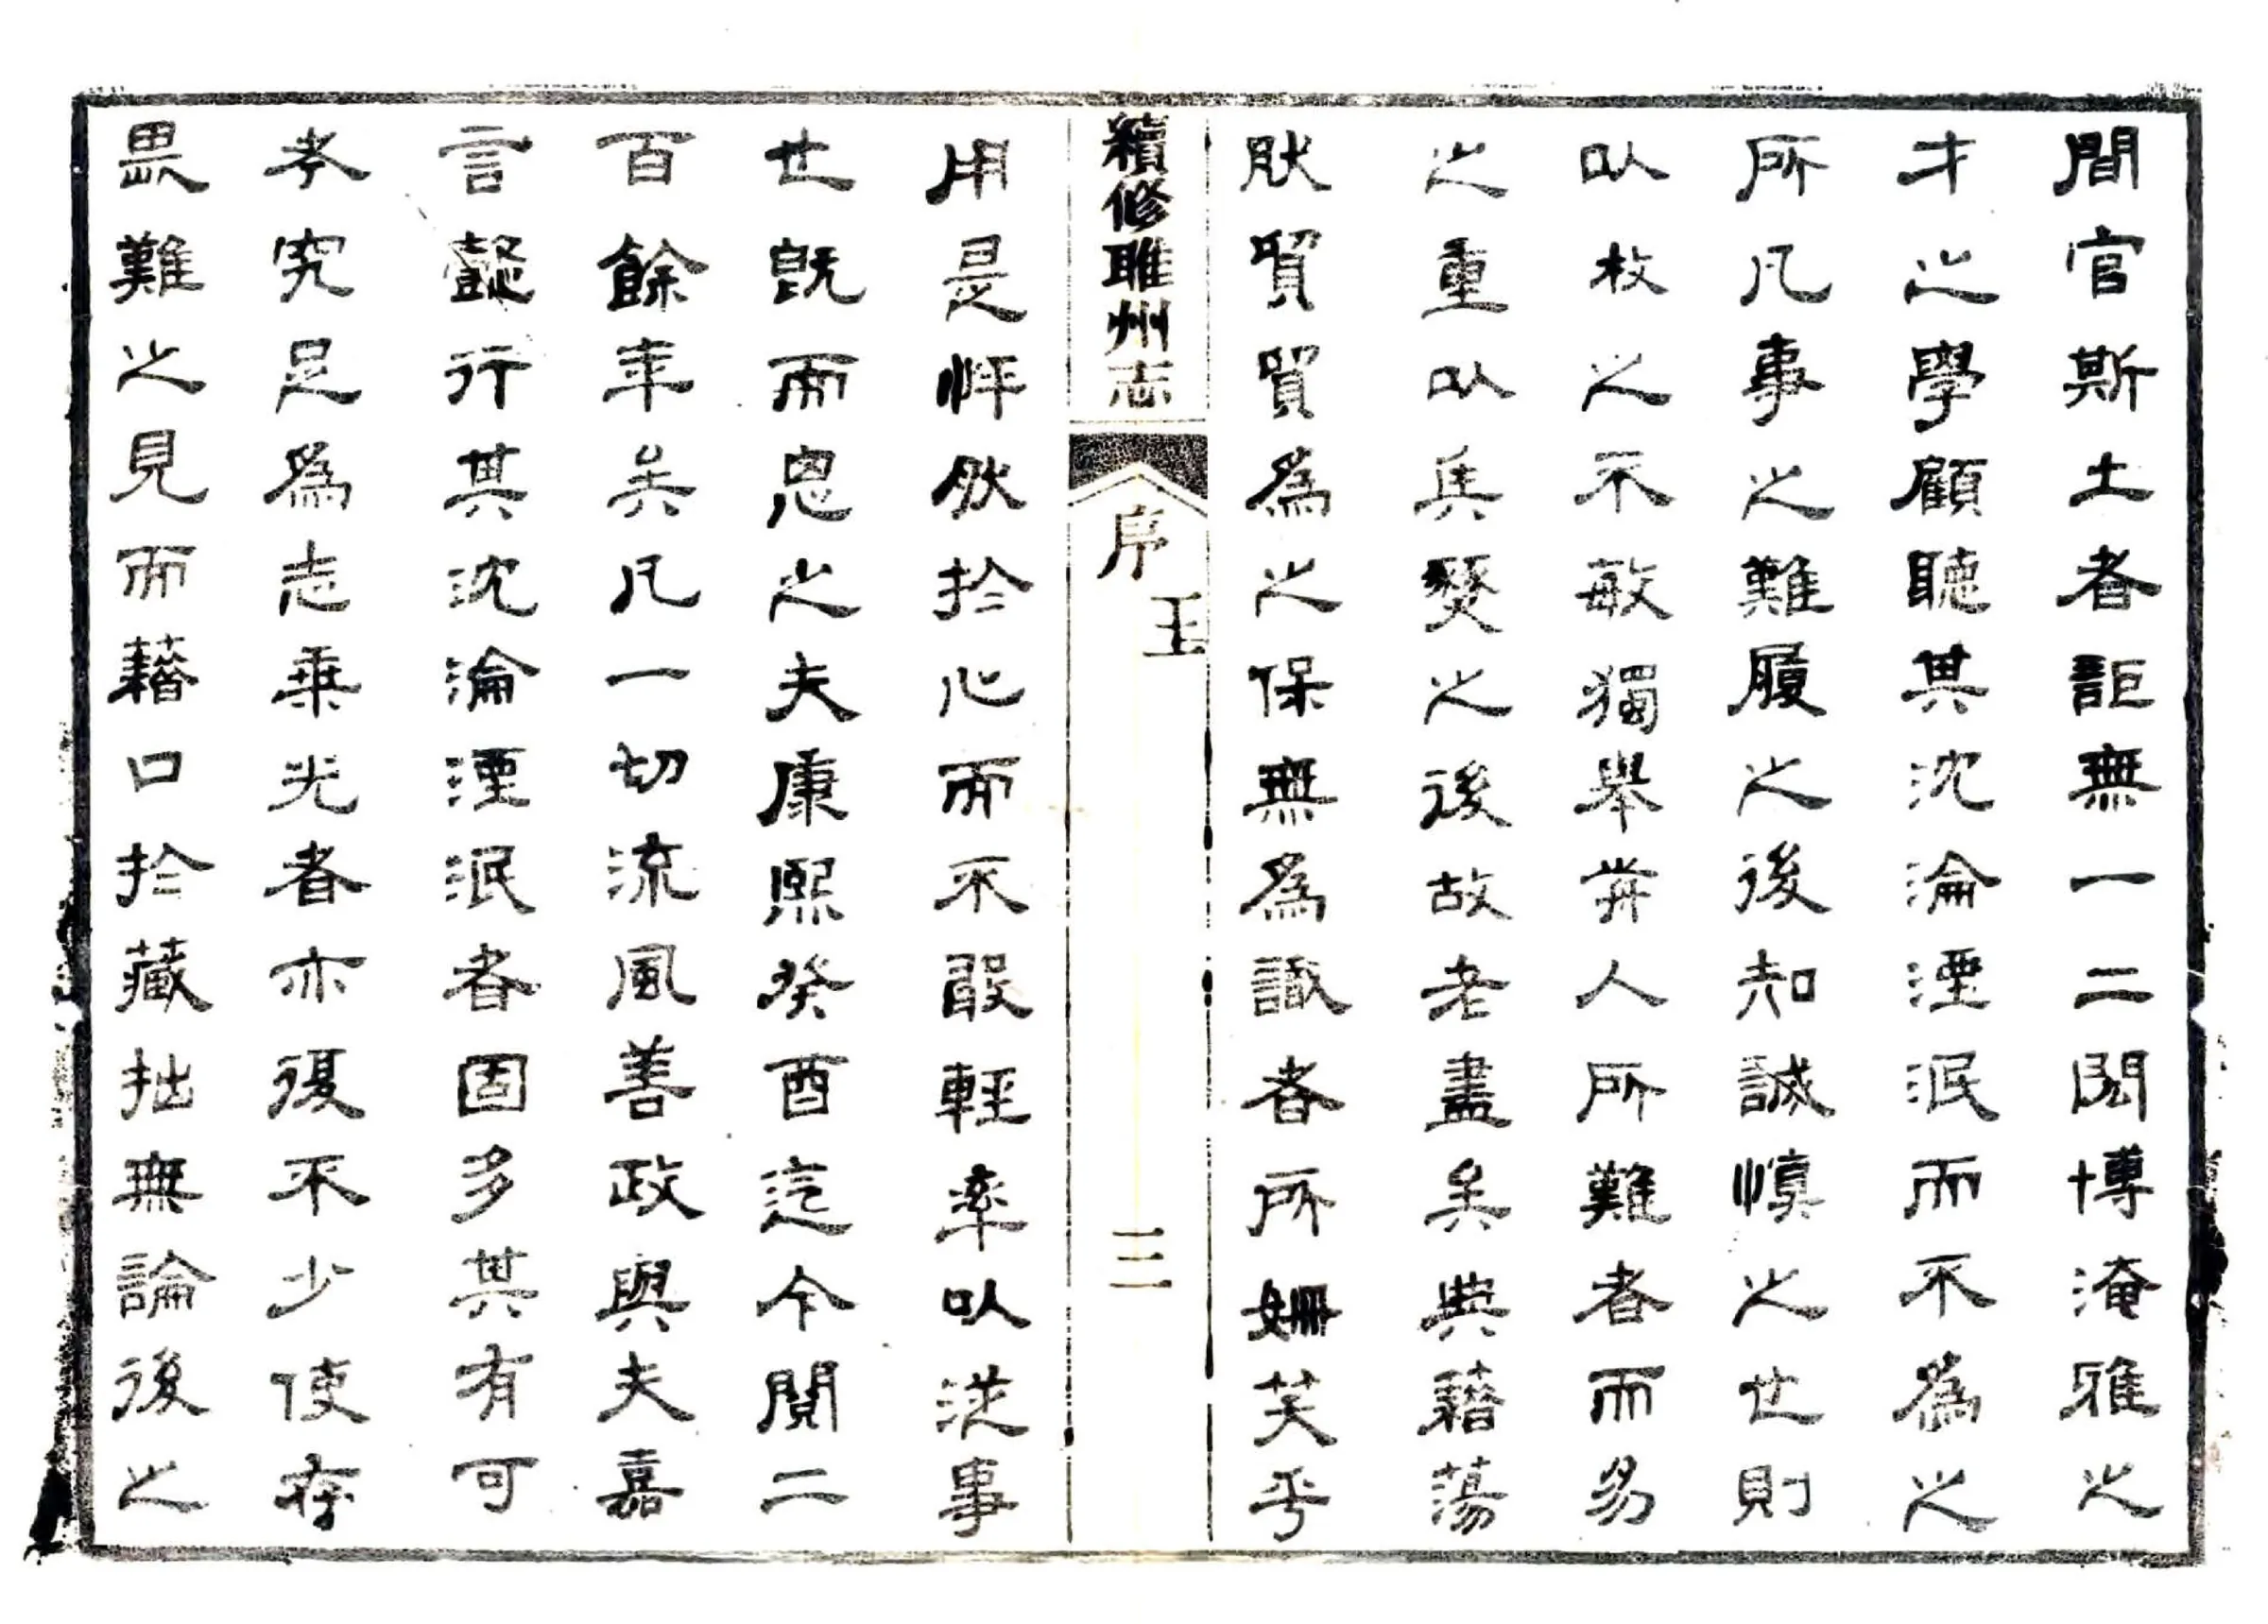 間官斯土者詎無一二閎博淹雅之
才之學顧聽其沈淪湮泯而不爲之
所凡事之難履之後知誠慎之也則
以枚之不敏獨舉前人所難者而易
之重以兵燹之後故老盡矣典藉蕩
肰貿貿爲之保無爲識者所姍笑乎
續修睢州志
序
王
三
用是怦肰於心而不敢輕率以從事
也旣而思之夫康熙癸酉迄今閱二
百餘年矣凡一切流風善政與夫嘉
言懿行其沈淪湮泯者固多其有可
考究足爲志乘光者亦復不少使存
畏難之見而藉口於藏拙無論後之